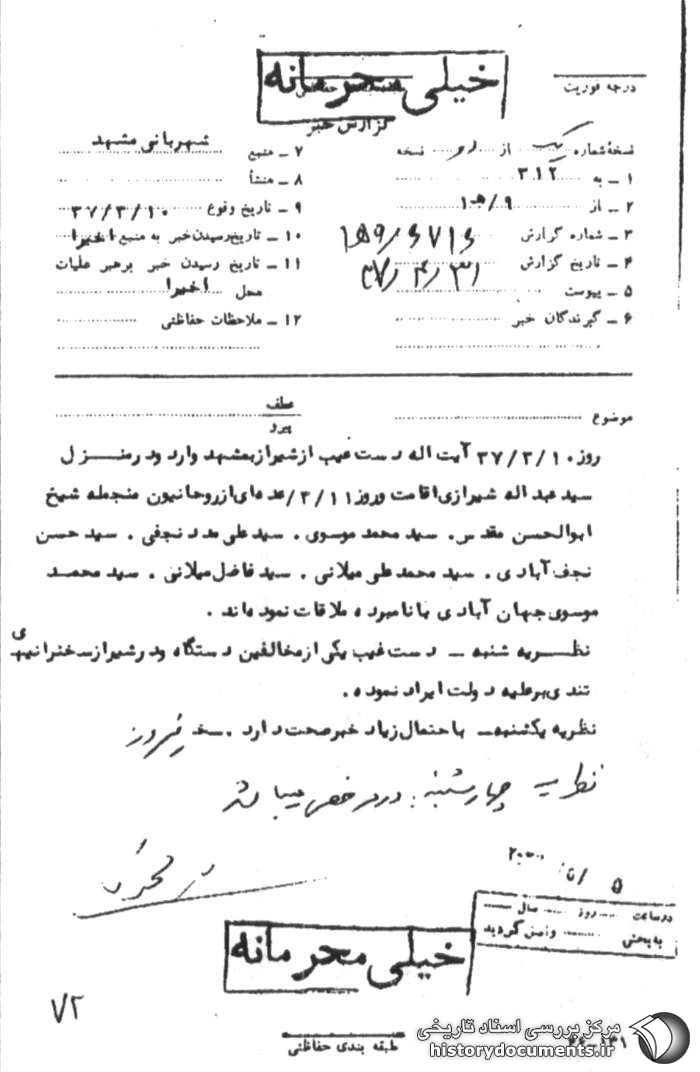 خیلی محرمانه
درجه فوریت
گزارش خبر
نسخهٔ شماره یک از نسخه
۱ ـ به ۳۱۲
۲ ـ از ۹/ه‍ ۱
۳ ـ شماره گزارش
۴ ـ تاریخ گزارش ۳۷/۴/۳۱
۵ ـ پیوست
۶ ـ گیرندگان خبر
۷ ـ منبع شهربانی مشهد
۸ ـ منشأ
۹ ـ تاریخ وقوع ۳۷/۳/۱۰
۱۰ ـ تاریخ رسیدن خبر به منبع اخیرا
۱۱ ـ تاریخ رسیدن خبر برهبر عملیات
محل اخیرا
۱۲ ـ ملاحظات حفاظتی
موضوع
عطف
پیرو
روز ۳۷/۳/۱۰ آیت اله دست غیب از شیراز بمشهد وارد و در منزل
سید عبداله شیرازی اقامت و روز ۳/۱۱/ عده‌ای از روحانیون منجمله شیخ
ابوالحسن مقدس. سید محمد موسوی. سید علی مدد نجفی. سید حسن
نجف آبادی. سید محمد علی میلانی. سید فاضل میلانی. سید محمد
موسوی جهان آبادی با نامبرده ملاقات نموده‌اند.
نظریه شنبه ـ دست غیب یکی از مخالفین دستگاه و در شیراز سخنرانیهای
تندی برعلیه دولت ایراد نموده.
نظریه یکشنبه ـ با احتمال زیاد خبر صحت دارد. فیروز
نظریه چهارشنبه: در مرخصی میباشد
در ساعت روز سال
به بخش واصل گردید
خیلی محرمانه
۷۲
طبقه بندی حفاظتی
مرکز بررسی اسناد تاریخی
historydocuments.ir